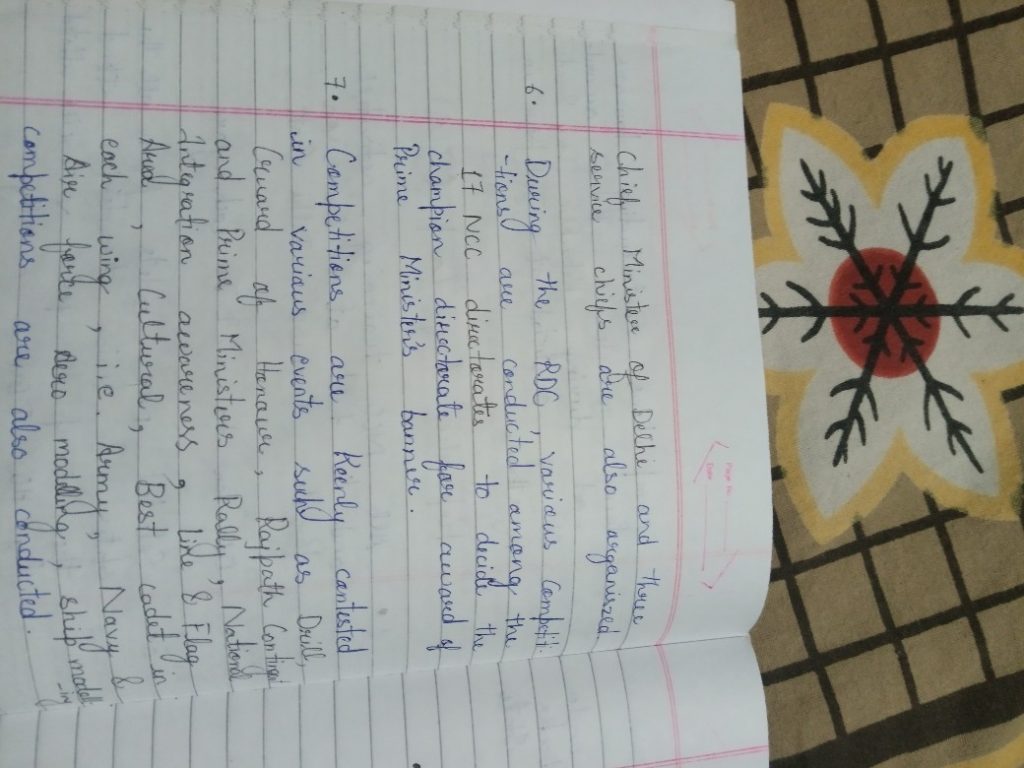 Chief Minister of Delhi and three
service chiefs are also organized
6. During the RDC, various competi-
-tions are conducted among the
17 NCC directorates to decide the
champion directorate for award of
Prime Minister's banner.
7. Competitions are Keenly contested
in various events such as Drill,
Guard of Honour, Rajpath Contige
and Prime Ministers Rally, National
Integration awareness, Line & Flag
Area, Cultural, Best cadet in
each wing, i.e. Army, Navy &
Air force aero modlling, ship modell
-ing
competitions are also conducted.